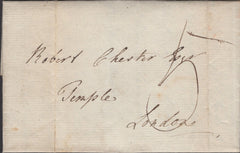 Robert Chester Esqr
Temple
London